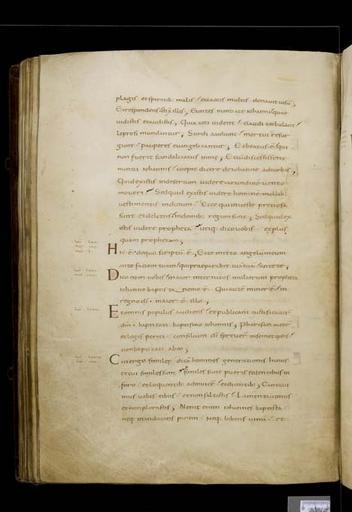 plagis et spiritib; malis & caecis multis donauit uisu,
Et respondens dix illis, Euntes nuntiate iohanni quae
uidistis & audistis, Quia caeci uident claudi ambulant
leprosi mundantur, Surdi audiunt mortui resur
gunt pauperes euangelizantur, Et beatus e qui
non fuerit scandalizatus in me,
nuntii iohannis coepit dicere de iohanne ad turbas,
Quid existis in desertum uidere
moueri Sed quid existis uidere hominem mollib;
uestimentis indutum, Ecce qui in ueste praetiosa
sunt & deliciis in domib; regum sunt, Sed quid ex
istis uidere propheta utiq; dico uobis & plus
quam propheta,
Hic e de quo scriptu e, Ecce mitto angelum meum
ante faciem tuam qui praeparabit uiam tuam ante te,
Dico enim uobis maior inter natos mulierum propheta
iohanne baptista nemo e, Qui aute minor e in
regno di maior e illo,
Et omnis populus audiens & publicani iustificauer
dm baptizati baptismo iohannis, Pharisaei aute
& legis periti consilium di spreuer in semetipsos
non baptizati ab eo,
Cui ergo similes dica homines generationis huius
& cui similes sunt Similes sunt pueris sedentibus in
foro & loquentib; ad inuice & dicentib; Cantaui
mus uobis tibiis & non saltastis, Lamentauimus
& non plorastis, Venit enim iohannes baptista
neq; manducans panem neq; bibens uinu &